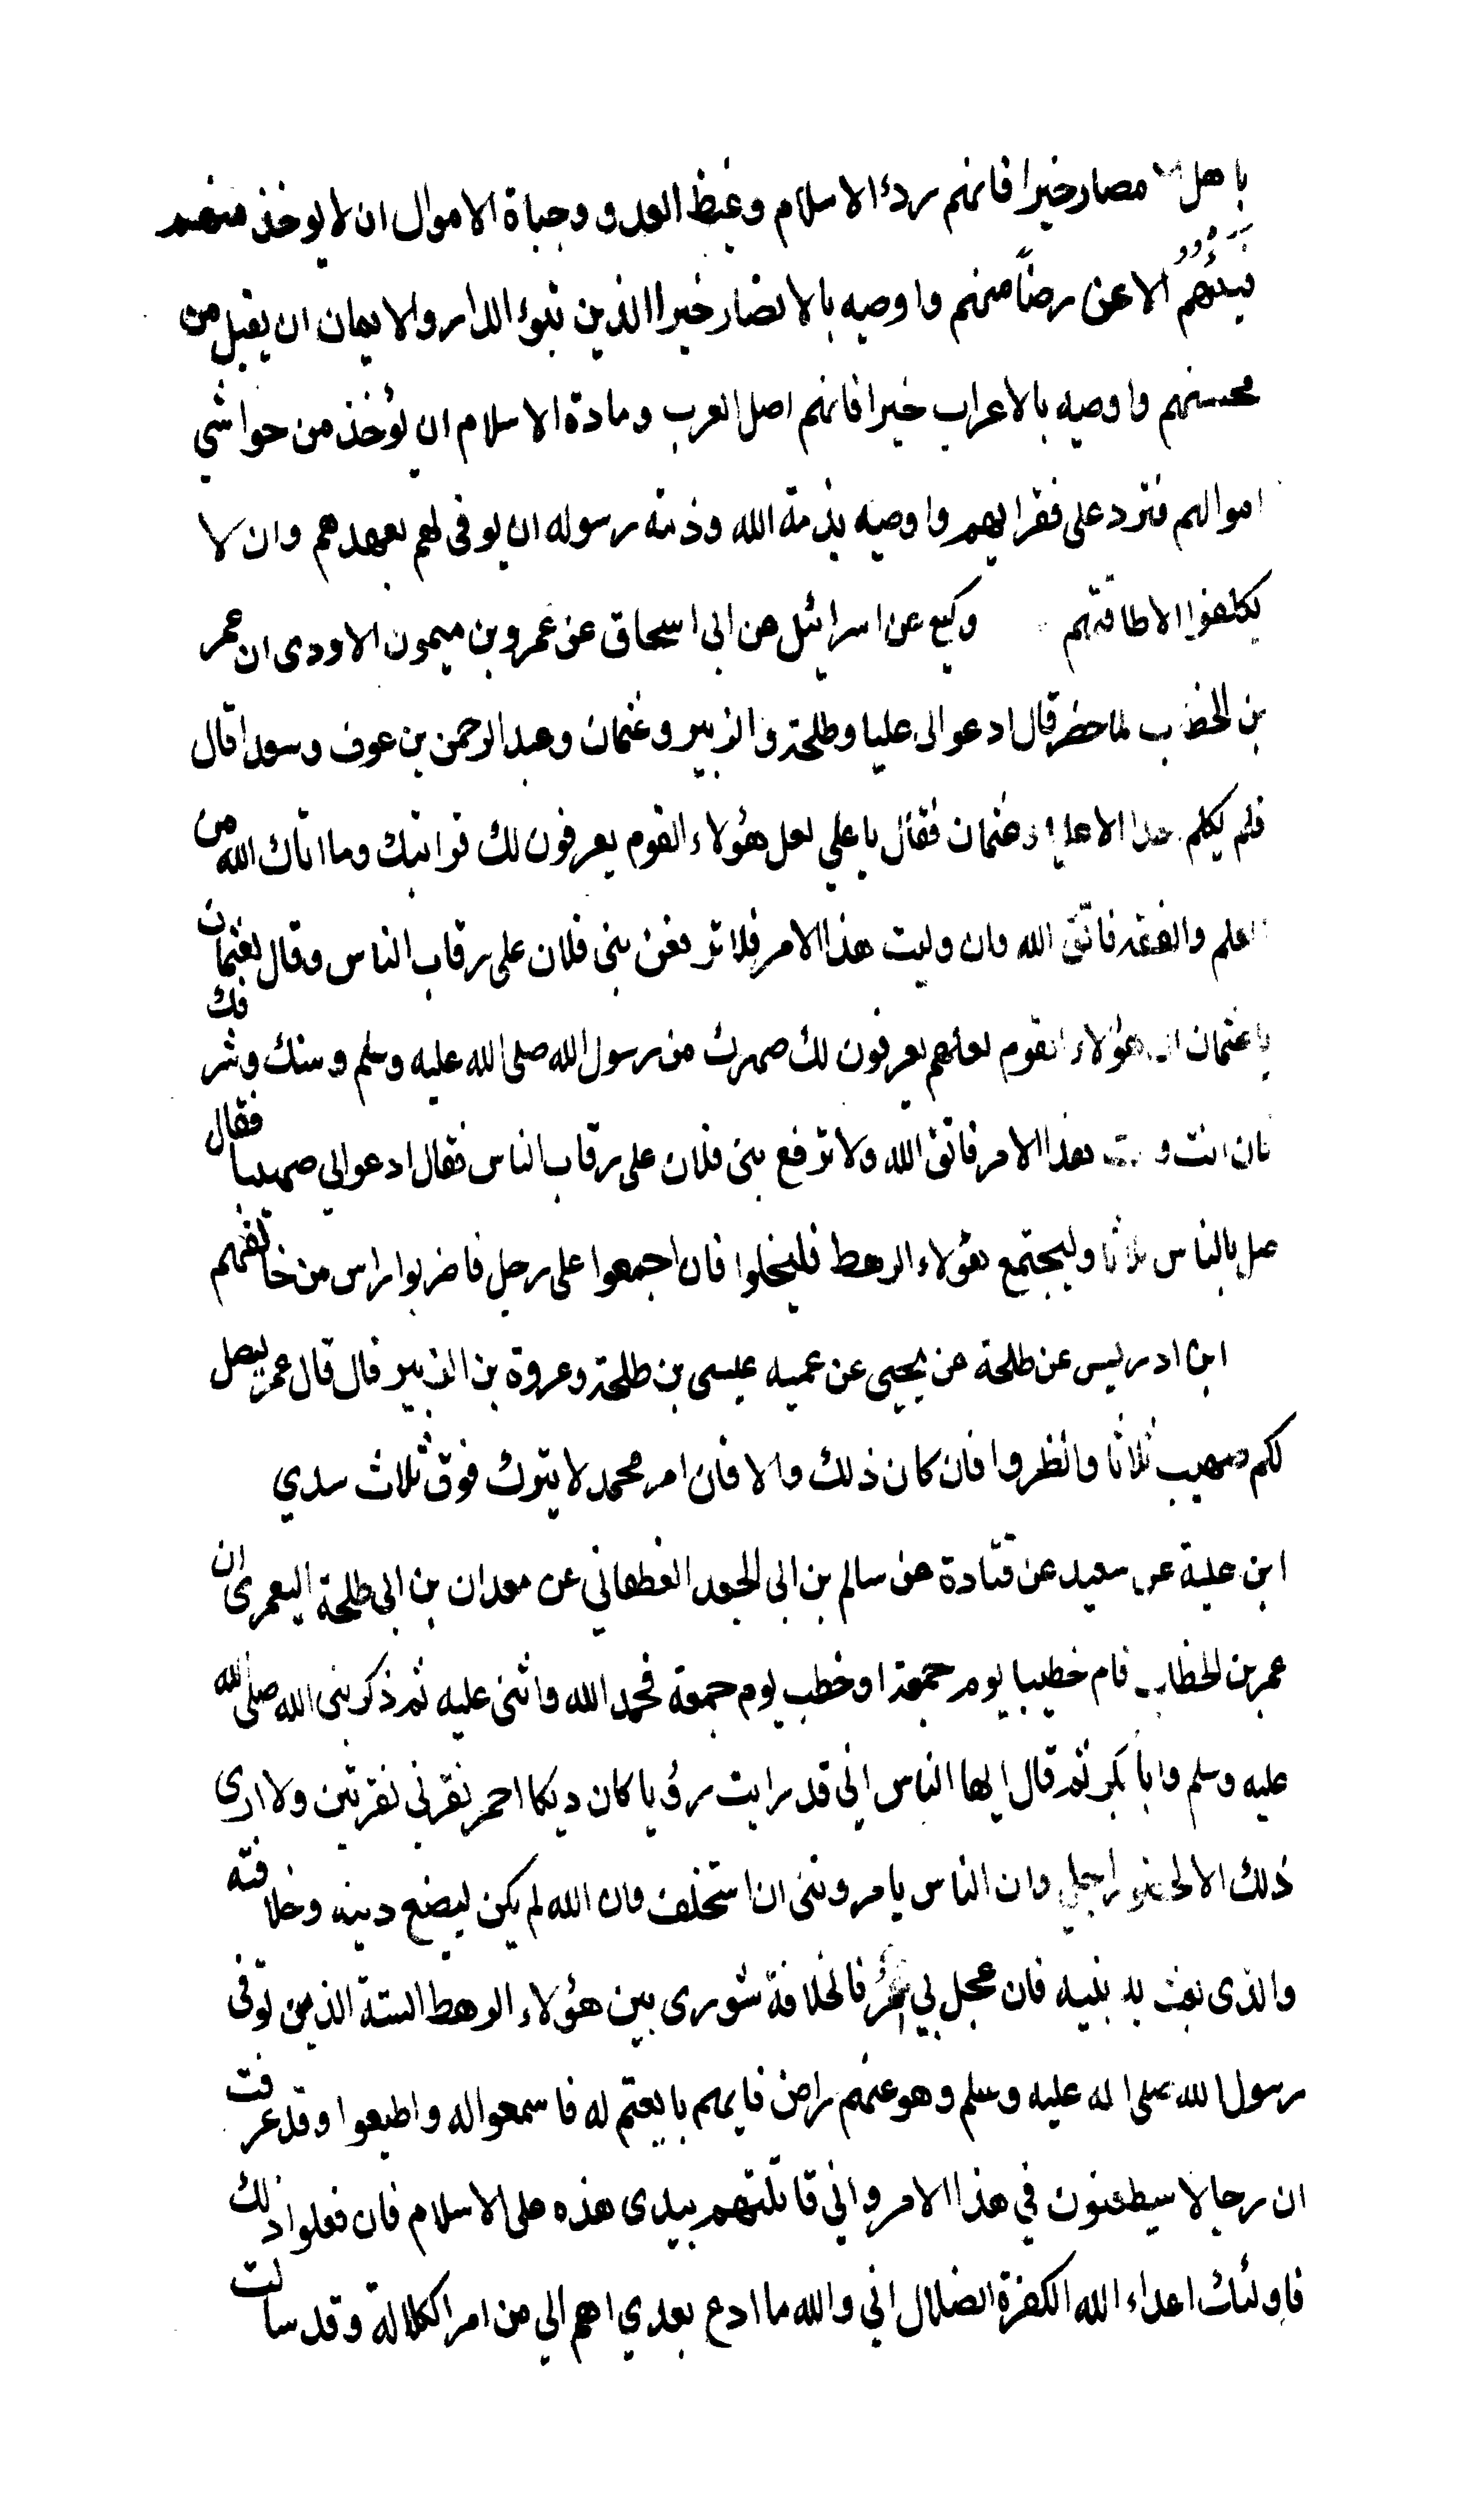 باهل الامصار خيرا فانهم ردء الاسلام وغيظ العدو وجباة الاموال ان لا يوخذ منهم
فيئهم الا عن رضا منهم واوصيه بالانصار خيرا الذين تبوءا الدار والايمان ان يقبل من
محسنهم واوصيه بالاعراب خيرا فانهم اصل العرب ومادة الاسلام ان يؤخذ من حواشي
اموالهم فترد على فقرايهم واوصيه بذمة الله وذمة رسوله ان يوفى لهم بعهدهم وان لا
يكلفوا الا طاقتهم وكيع عن اسرائيل عن ابى اسحاق عن عمرو بن ميمون الاودى ان عمر
بن الخطاب لما حضر قال ادعوا لى عليا وطلحة والزبير وعثمان وعبد الرحمن بن عوف وسعدا قال
فلم يكلم احدا الا عليا وعثمان فقال يا علي لعل هؤلاء القوم يعرفون لك قرابتك وما اتاك الله من
العلم والفقه فاتق الله وان وليت هذا الامر فلا ترفعن بنى فلان على رقاب الناس وقال لعثمان
يا عثمان ان هؤلاء القوم لعلهم يعرفون لك صهرك من رسول الله صلى الله عليه وسلم وسنك وشرفك
فان انت وليت هذا الامر فاتق الله ولا ترفع بنى فلان على رقاب الناس فقال ادعوا لي صهيبا فقال
صل بالناس ثلاثا وليجتمع هؤلاء الرهط فليخلوا فان اجمعوا على رجل فاضربوا راس من خالفهم
ابن ادريس عن طلحة عن يحيى عن عميه عيسى بن طلحة وعروة بن الزبير قال قال عمر ليصل
لكم صهيب ثلاثا وانظروا فان كان ذلك والا فان امر محمد لا يترك فوق ثلاث سدي
ابن علية عن سعيد عن قتادة عن سالم بن ابى الجعد الغطفاني عن معدان بن ابي طلحة اليعمرى ان
عمر بن الخطاب قام خطيبا يوم جمعة او خطب يوم جمعة فحمد الله واثنى عليه ثم ذكر نبى الله صلى الله
عليه وسلم وابا بكر ثم قال ايها الناس اني قد رايت رؤيا كان ديكا احمر نقرني نقرتين ولا ارى
ذلك الا لحضور اجلي وان الناس يامرونني ان استخلف وان الله لم يكن ليضيع دينه وخلافته
والذى بعث به نبيه فان عجل بي امر فالخلافة شورى بين هؤلاء الرهط الستة الذين توفى
رسول الله صلى الله عليه وسلم وهو عنهم راض فايهم بايعتم له فاسمعوا له واطيعوا وقد عرفت
ان رجالا سيطعنون في هذا الامر واني قاتلتهم بيدى هذه على الاسلام فان فعلوا ذلك
فاولئك اعداء الله الكفرة الضلال اني والله ما ادع بعدي اهم الي من امر الكلالة وقد سالت